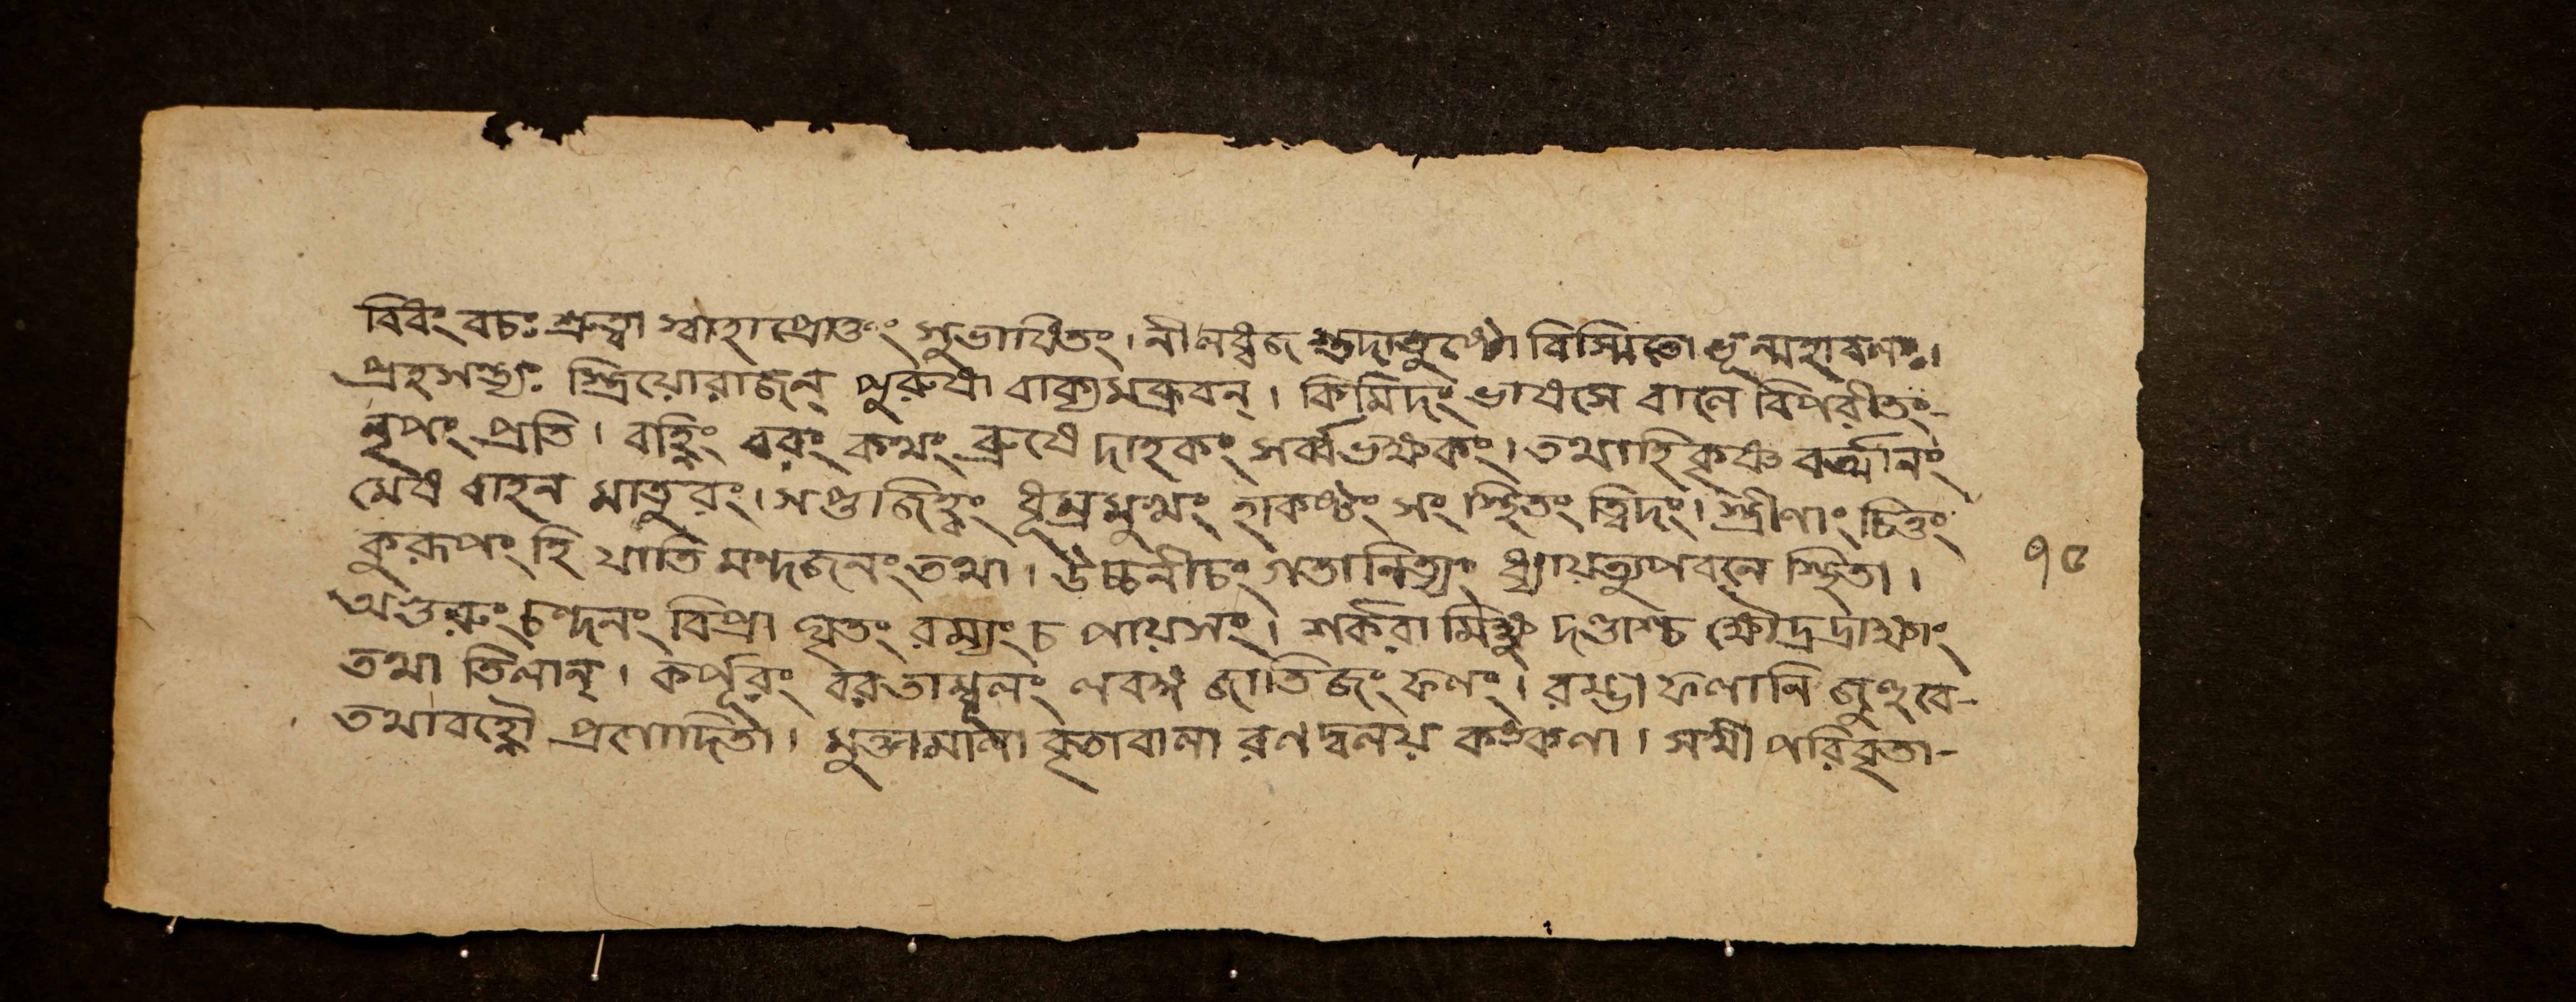 বিধং বচঃ শ্রুত্বা স্বাহাপ্রোক্তং সুভাষিতং। নীলধ্বজ স্তদাত্রুপ্যে বিস্মিতো ভূন্মহাবলঃ।
প্রহসন্ত্যঃ স্ত্রিয়োরাজন্ পুরুষা বাক্যমব্রুবন্। কিমিদং ভাষসে বালে বিপরীতং-
নৃপং প্রতি। বহ্নিং বরং কথং ব্রুষে দাহকং সর্ব্বভক্ষকং। তথাহি কৃষ্ণ বর্ত্মানং
মেষ বাহন মাতুরং। সপ্তজিহ্বং ধূম্রমুখং হাকণ্ঠং সং স্থিতং ত্বিদং। স্ত্রীণাং চিত্তং
কুরূপং হি যাতি মন্দজনং তথা। উচ্চনীচং গতানিত্যং ধ্যায়ত্যুপবনে স্থিতা। ৭৫
অগুরুং চন্দনং বিপ্রা ঘৃতং রম্যং চ পায়সং। শর্করা মিক্ষু দণ্ডাশ্চ ক্ষৌদ্রদ্রাক্ষাং
তথা তিলান্। কর্পূরং বরতাম্বূলং লবঙ্গ জাতিজং ফলং। রম্ভা ফলানি জুহুবে-
তথাবহ্নৌ প্রণোদিতা। মুক্তামালা কৃতাবালা রণদ্বলয় কঙ্কণা। সখী পরিবৃতা-